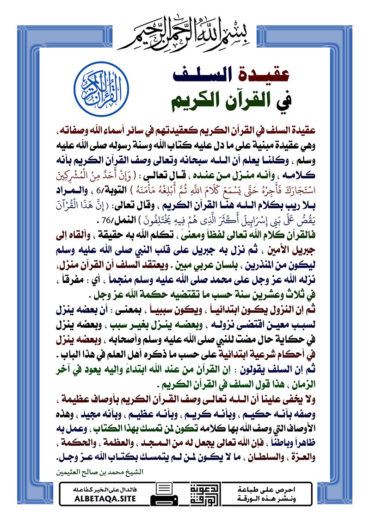 بسم الله الرحمن الرحيم
عقيدة السلف
في القرآن الكريم
القرآن الكريم
عقيدة السلف في القرآن الكريم كعقيدتهم في سائر أسماء الله وصفاته ،
وهي عقيدة مبنية على ما دل عليه كتاب الله وسنة رسوله صلى الله عليه
وسلم ، وكلنا يعلم أن الله سبحانه وتعالى وصف القرآن الكريم بأنه
كلامه ، وأنه منزل من عنده ، قال تعالى : ( وَإِنْ أَحَدٌ مِنَ الْمُشْرِكِينَ
اسْتَجَارَكَ فَأَجِرْهُ حَتَّى يَسْمَعَ كَلَامَ اللَّهِ ثُمَّ أَبْلِغْهُ مَأْمَنَهُ ) التوبة/6 ، والمراد
بلا ريب بكلام الله هنا القرآن الكريم ، وقال تعالى: ( إِنَّ هَذَا الْقُرْآنَ
يَقُصُّ عَلَى بَنِي إِسْرَائِيلَ أَكْثَرَ الَّذِي هُمْ فِيهِ يَخْتَلِفُونَ ) النمل/76 .
فالقرآن كلام الله تعالى لفظاً ومعنى ، تكلم الله به حقيقة ، وألقاه إلى
جبريل الأمين ، ثم نزل به جبريل على قلب النبي صلى الله عليه وسلم
ليكون من المنذرين ، بلسان عربي مبين . ويعتقد السلف أن القرآن منزل،
نزله الله عز وجل على محمد صلى الله عليه وسلم منجماً ، أي : مفرقاً ،
في ثلاث وعشرين سنة حسب ما تقتضيه حكمة الله عز وجل .
ثم إن النزول يكون ابتدائياً ، ويكون سببياً ، بمعنى : أن بعضه ينزل
لسبب معين اقتضى نزوله ، وبعضه ينزل بغير سبب ، وبعضه ينزل
في حكاية حال مضت للنبي صلى الله عليه وسلم وأصحابه ، وبعضه ينزل
في أحكام شرعية ابتدائية على حسب ما ذكره أهل العلم في هذا الباب .
ثم إن السلف يقولون : إن القرآن من عند الله ابتداءً وإليه يعود في آخر
الزمان ، هذا قول السلف في القرآن الكريم .
ولا يخفى علينا أن الله تعالى وصف القرآن الكريم بأوصاف عظيمة ،
وصفه بأنه حكيم ، وبأنه كريم ، وبأنه عظيم ، وبأنه مجيد ، وهذه
الأوصاف التي وصف الله بها كلامه تكون لمن تمسك بهذا الكتاب ، وعمل به
ظاهراً وباطناً ، فإن الله تعالى يجعل له من المجد ، والعظمة ، والحكمة ،
والعزة ، والسلطان ، ما لا يكون لمن لم يتمسك بكتاب الله عز وجل.
الشيخ محمد بن صالح العثيمين
احرص على طباعة
ونشر هذه الورقة
الدعوية
الورقة
فالدال على الخير كفاعله
ALBETAQA.SITE